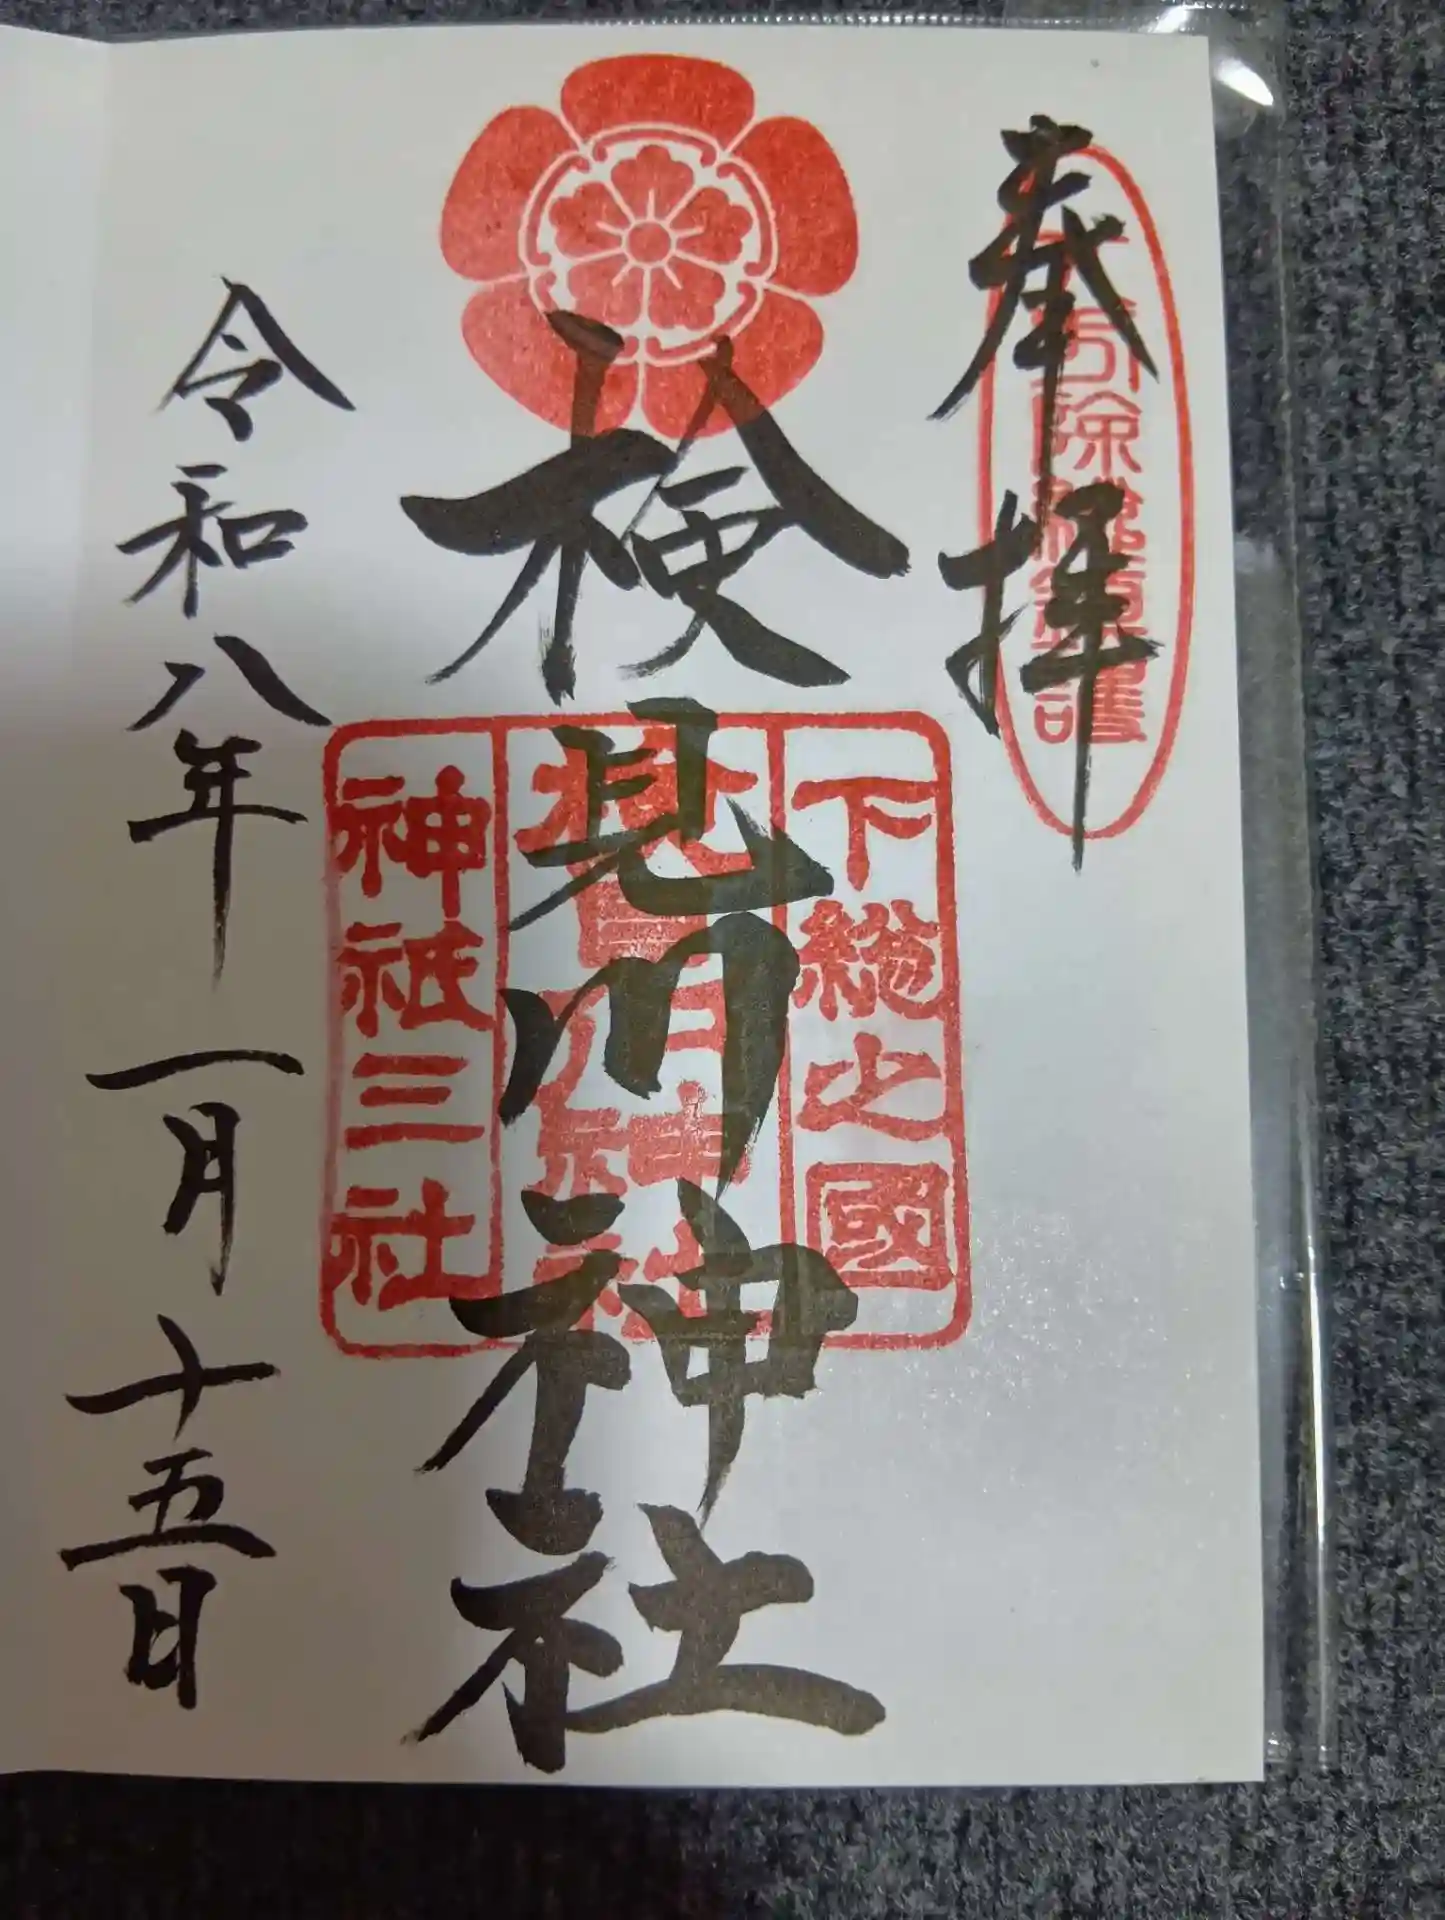 奉拝
八方除総鎮護
検見川神社
下総之國
検見川神社
神祇三社
令和八年 一月 十五日